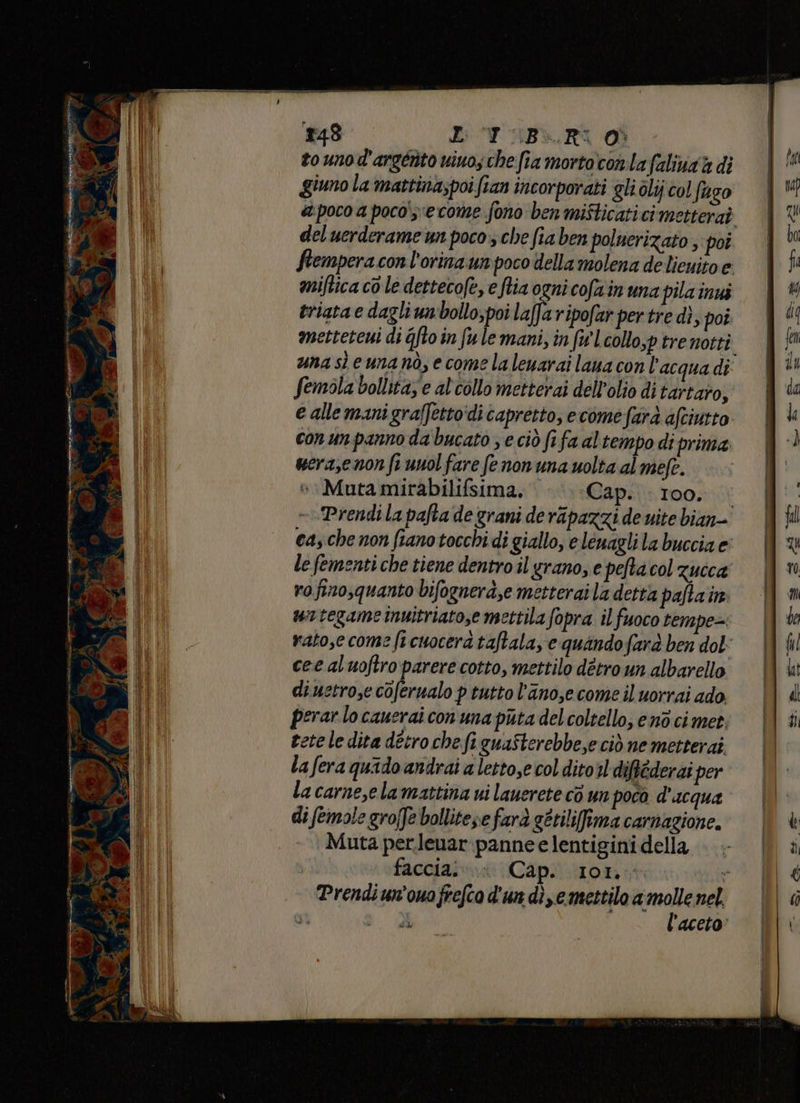 148 L I B R O
to uno d'argẽnto uiuo, che ſia morto con la ſaliua a di
giuno la mattina, poi ſian incorporati gli olij col ſugo
a poco a poco, e come ſono ben miſticati ci metterai
del uerderame un poco, che ſia ben poluerizato, poi
ſtempera con l'orina un poco della molena de lieuito e
miſtica cõ le dette coſe, e ſtia ogni coſa in una pila inui
triata e dagli un bollo, poi laſſa ripoſar per tre dì, poi
metteteui di q̃ſto in ſu le mani, in ſu'l collo, p tre notti
una sì e una nò, e come la leuarai laua con l'acqua di
ſemola bollita, e al collo metterai dell'olio di tartaro,
e alle mani graſſetto di capretto, e come ſarà aſciutto
con un panno da bucato, e ciò ſi fa al tempo di prima
uera, e non ſi uuol fare ſe non una uolta al meſe.
Muta mirabiliſsima. Cap. 100.
Prendi la paſta de grani de rãpazzi de uite bian-
ca, che non ſiano tocchi di giallo, e leuagli la buccia e
le ſementi che tiene dentro il grano, e peſta col zucca
ro fino, quanto biſognerà, e metterai la detta paſta in
un tegame inuitriato, e mettila ſopra il fuoco tempe-
rato, e come ſi cuocerà taſtala, e quando ſarà ben dol
ce e al uoſtro parere cotto, mettilo dẽtro un albarello
di uetro, e cõſerualo p tutto l'ãno, e come il uorrai ado
perar lo cauerai con una pũta del coltello, e nõ ci met
tete le dita dẽtro che ſi guaſterebbe, e ciò ne metterai
la ſera quãdo andrai a letto, e col dito il diſtẽderai per
la carne, e la mattina ui lauerete cõ un poco d'acqua
di ſemole groſſe bollite, e farà gẽtiliſſima carnagione.
Muta per leuar panne e lentigini della
faccia. Cap. 101.
Prendi un'ouo freſco d'un dì, e mettilo a molle nel
l'aceto